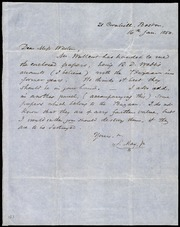 21 Cornhill, Boston.
16th Jan. 1860.
Dear Miss Weston,
Mr. Wallcut has handed to me
the enclosed papers, being R. D. Webb's
accounts (I believe) with the Bazaar in
former years. He thinks it best they
should be in your hands. I also add,
in another parcel, (accompanying this) some
which belong to the Bazaar. I do not
know that they are of any further value, but
I wish you could destroy them, if they
are so
Yours, &c.
S. May Jr.